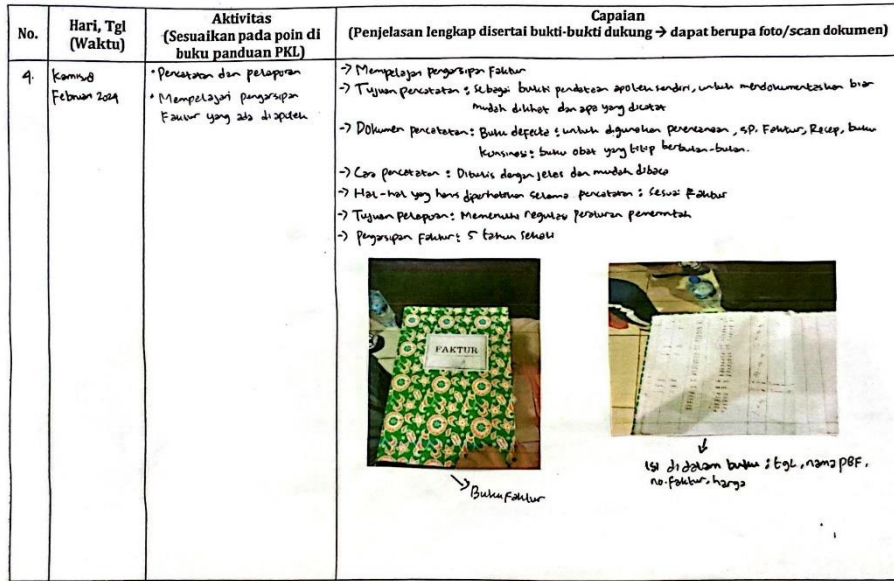 No.
Hari, Tgl
(Waktu)
Aktivitas
(Sesuaikan pada poin di
buku panduan PKL)
Capaian
(Penjelasan lengkap disertai bukti-bukti dukung → dapat berupa foto/scan dokumen)
4.
Kamis, 8
Februari 2024
• Pencatatan dan pelaporan
• Mempelajari pengarsipan
Faktur yang ada diapotek
-> Mempelajari pengarsipan Faktur
-> Tujuan pencatatan : Sebagai bukti pendataan apotek sendiri, untuk mendokumentasikan biar
mudah dilihat dan apa yang dicatat
-> Dokumen pencatatan : Buku defecta : untuk digunakan perencanaan, SP, Faktur, Resep, buku
konsinasi : buku obat yang titip berbulan-bulan.
-> Cara pencatatan : Ditulis dengan jelas dan mudah dibaca
-> Hal-hal yang harus diperhatikan selama pencatatan : sesuai Faktur
-> Tujuan Pelaporan : Memenuhi regulasi peraturan pemerintah
-> Pengarsipan Faktur : 5 tahun sekali
FAKTUR
Buku Faktur
Isi didalam buku : tgl, nama PBF,
no. faktur, harga